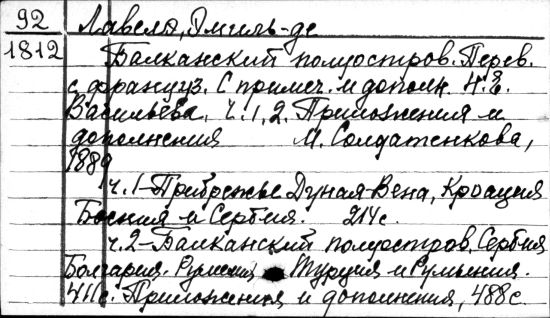 92 Лавелэ, Эмиль-де
1812 Балканский полуостров. Перев.
с француз. С примеч. и дополн. Н.Е.
Васильева, ч. 1, 2. Приложения и
дополнения М. Солдатенкова,
1889
ч. 1-Прибрежье Дуная-Вена, Кроация
Босния и Сербия. 214с.
ч. 2-Балканский полуостров. Сербия
Болгария. Румелия Турция и Румыния.
411с. Приложения и дополнения, 488с.